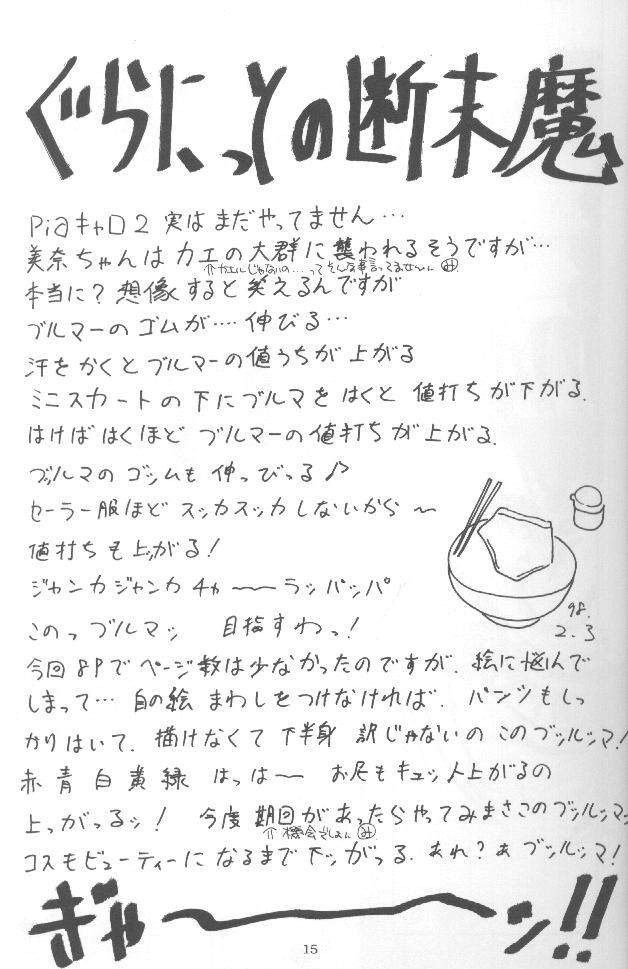 ぐらにっとの断末魔
Piaキャロ2 実はまだやってません…
美奈ちゃんは カエの大群に襲われるそうですが…
⇧カエルじゃないの…ってそんな事言ってませんん
本当に?想像すると笑えるんですが
ブルマーのゴムが…. 伸びる…
汗をかくとブルマーの値うちが上がる
ミニスカートの下にブルマをはくと 値打ちが下がる.
はけばはくほど ブルマーの値打ちが上がる.
ブッルマの ゴッムも 伸っびっる♪
セーラー服ほど スッカスッカしないから 〜
値打ちも上ッがる!
ジャンカジャンカ チャ〜〜 ラッパッパ
このっ ブルマッ 目指すわっ!
98.
2.3
今回8Pでページ数は少なかったのですが、絵に悩んで
しまって… 自の絵 まわしをつけなければ、パンツもしっ
かりはいて、描けなくて下半身 訳じゃないの このブッルッマ!
赤 青 白 黄 緑 はっは〜 お尻もキュッと上がるの
上っがっるッ! 今度 期回があったらやってみまさこのブッルッマッ
⇧機会でしょん
コスモビューティーになるまで下ッがっる. あれ?あ ブッルッマ!
ぎゃ〜〜ン!!
15